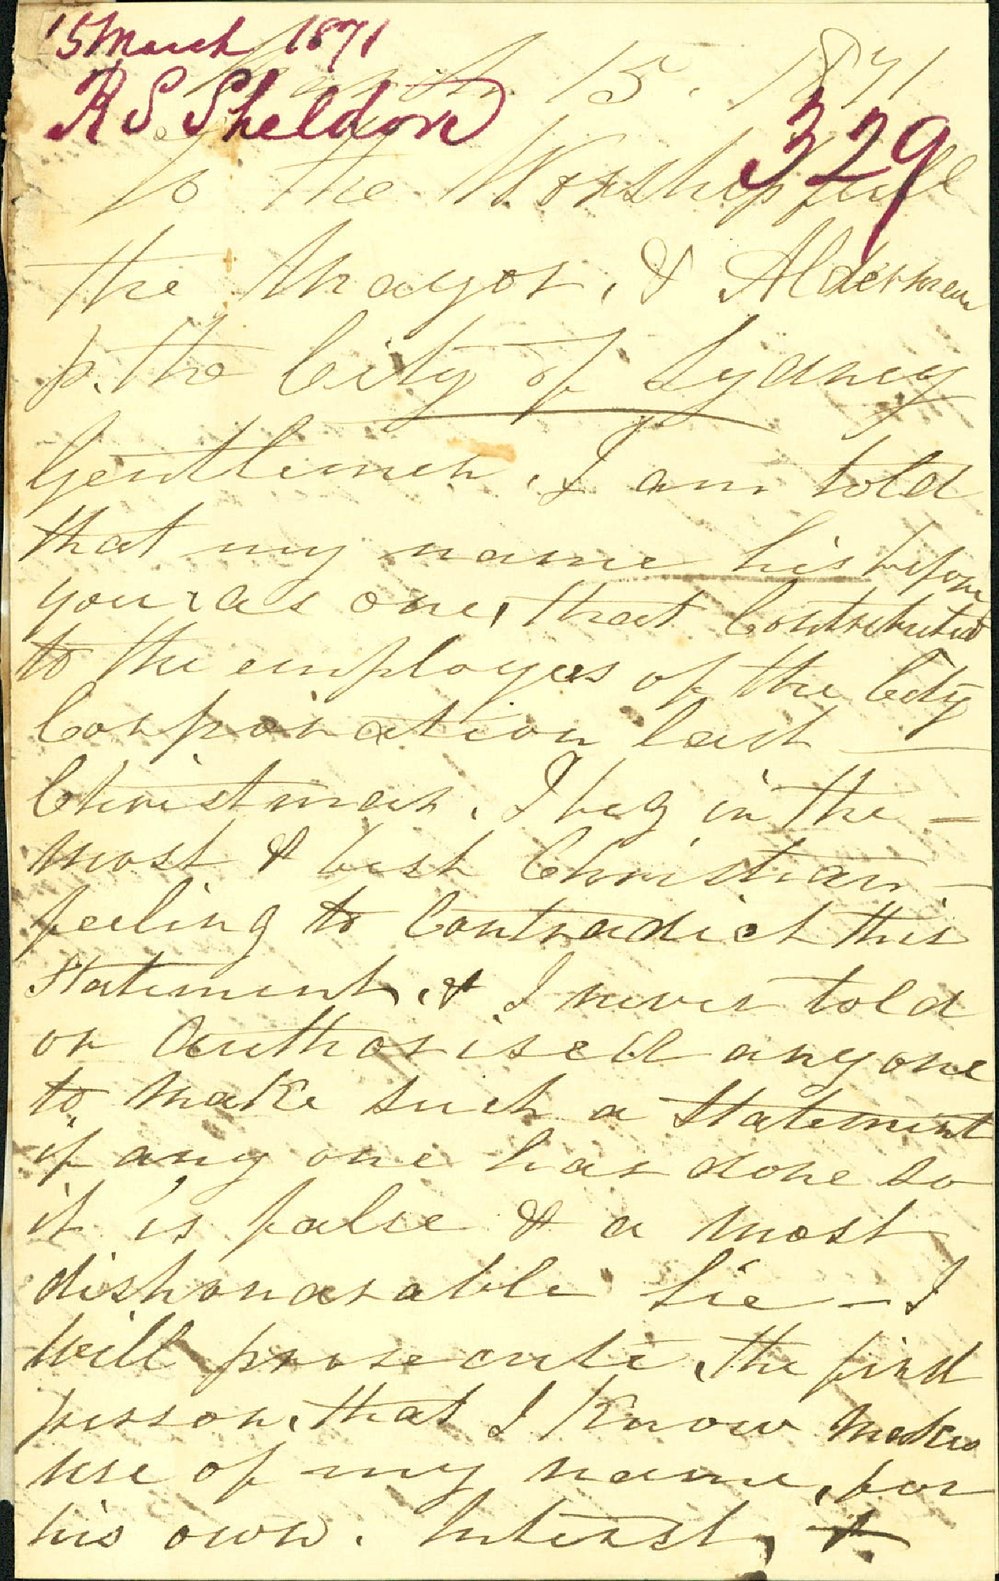 15 March 1871
R S Sheldon
March 15. 1871
329
To the Worshipfull
the Mayor, & Aldermen
p. the City of Sydney
Gentlemen, I am told
that my name his before
you as one, that Contributed
to the employees of the City
Corporation last
Christmas, I beg in the –
most & best Christian –
feeling to Contradict this
Statement, & I never told
or Authorised anyone
to make such a Statement
if any one has done so
it is false & a most
dishonarable Lie – I
will prosecute, the first
person, that I Know Makes
use of my name, for
his own. Interest, &